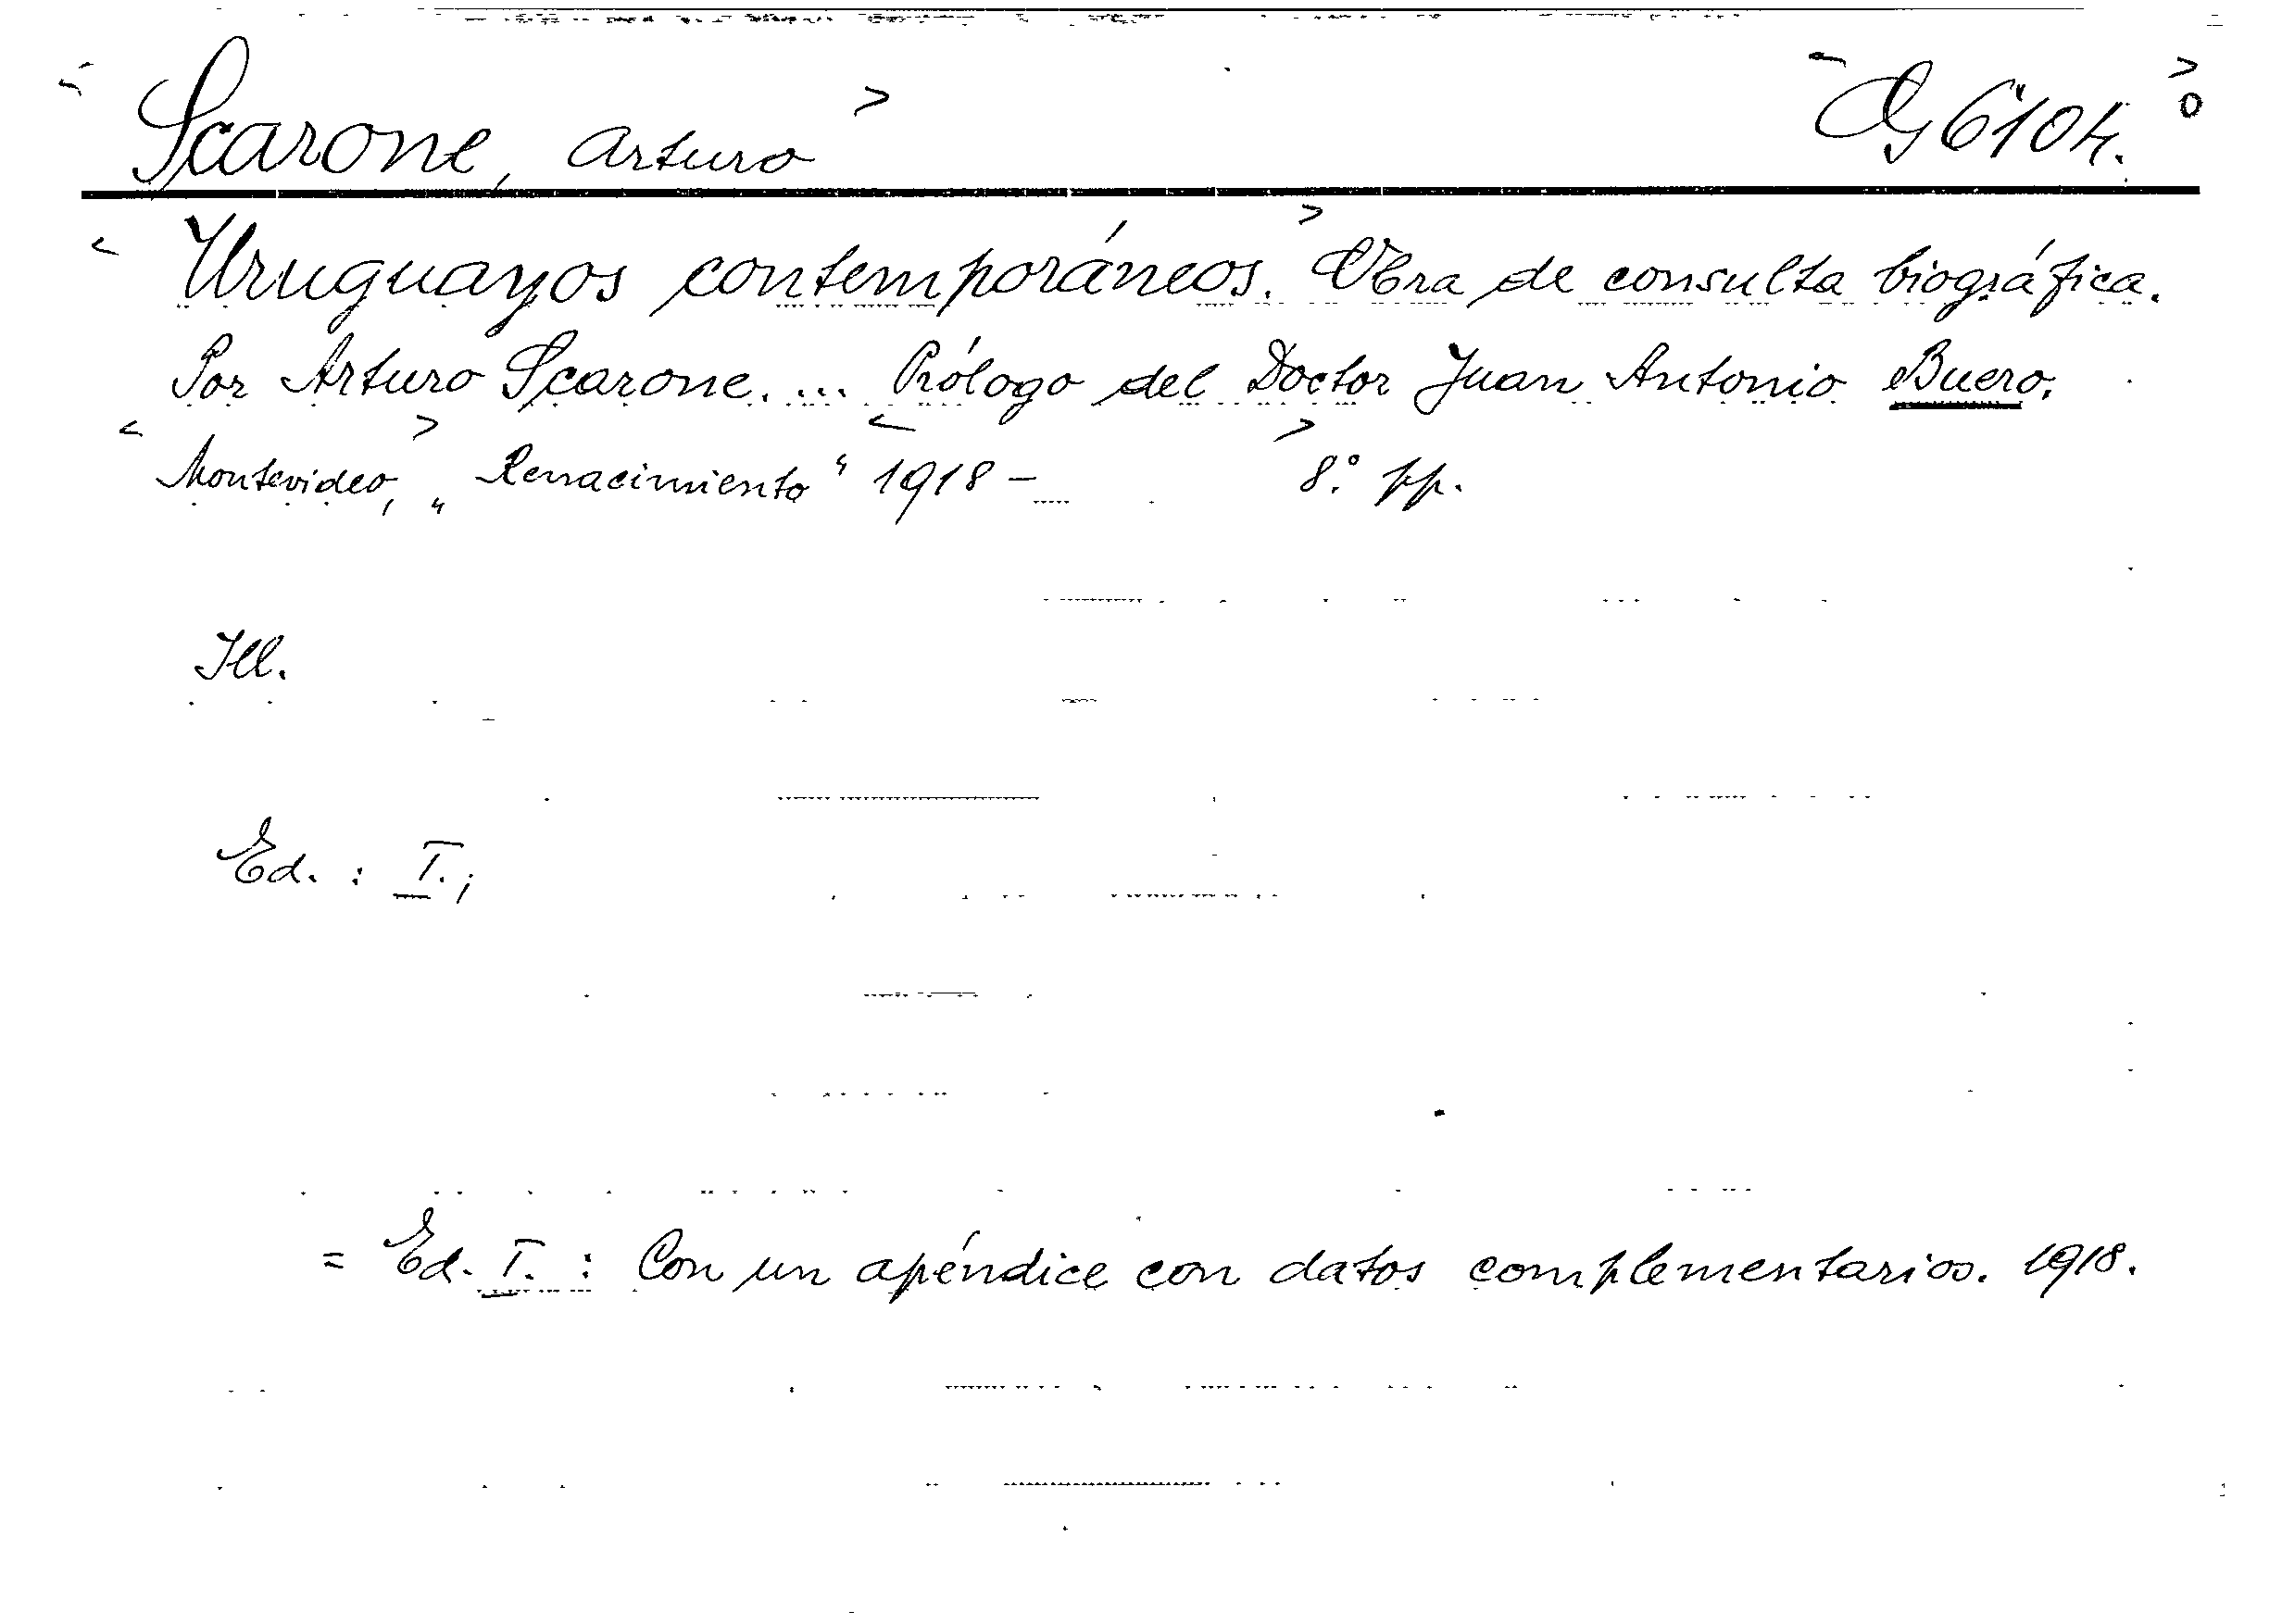 < Scarone, Arturo > 6104. o >
< Uruguayos contemporáneos. > Obra de consulta biográfica.
Por Arturo Scarone. ... Prólogo del Doctor Juan Antonio Buero.
< Montevideo, > „ Renacimiento “ < 1918 - > 8.° pp.
Ill.
Ed. : I. ;
= Ed. I. : Con un apéndice con datos complementarios. 1918.